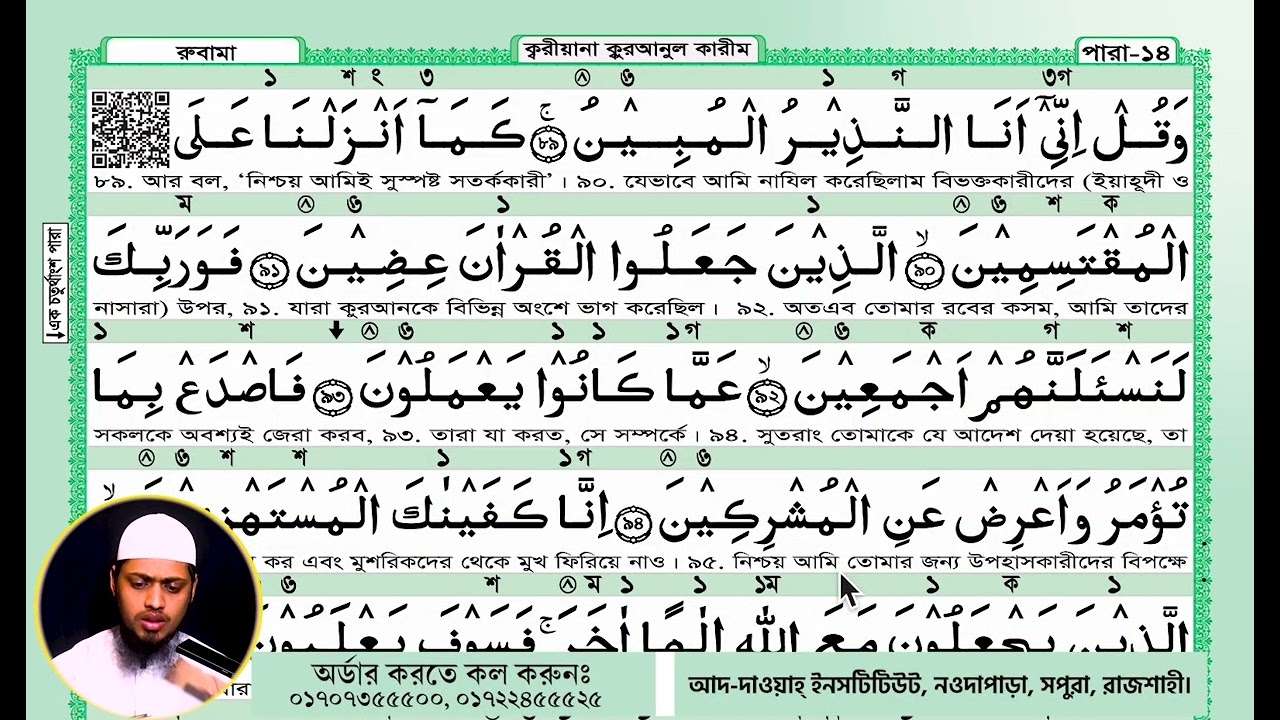 রুবামা
ক্বারীয়ানা কুরআনুল কারীম
পারা-১৪
১ শ ং ৩ ৬ ১ গ ৩গ
وَقُلْ اِنِّيْٓ اَنَا النَّذِيْرُ الْمُبِيْنُ ۚ ৮৯ كَمَآ اَنْزَلْنَا عَلَى
৮৯. আর বল, ‘নিশ্চয় আমিই সুস্পষ্ট সতর্ককারী’। ৯০. যেভাবে আমি নাযিল করেছিলাম বিভক্তকারীদের (ইয়াহূদী ও
ম ৬ ১ ১ ৬ শ ক
↓এক চতুর্থাংশ পারা
الْمُقْتَسِمِيْنَ ۙ ৯০ الَّذِيْنَ جَعَلُوا الْقُرْاٰنَ عِضِيْنَ ৯১ فَوَرَبِّكَ
নাসারা) উপর, ৯১. যারা কুরআনকে বিভিন্ন অংশে ভাগ করেছিল। ৯২. অতএব তোমার রবের কসম, আমি তাদের
১ শ ৬ ১ ১ ১গ ৬ ক গ শ
لَنَسْئَلَنَّهُمْ اَجْمَعِيْنَ ۙ ৯২ عَمَّا كَانُوْا يَعْمَلُوْنَ ৯৩ فَاصْدَعْ بِمَا
সকলকে অবশ্যই জেরা করব, ৯৩. তারা যা করত, সে সম্পর্কে। ৯৪. সুতরাং তোমাকে যে আদেশ দেয়া হয়েছে, তা
৬ শ শ ১ ১গ ৬
تُؤْمَرُ وَاَعْرِضْ عَنِ الْمُشْرِكِيْنَ ৯৪ اِنَّا كَفَيْنٰكَ الْمُسْتَهْزِ
কর এবং মুশরিকদের থেকে মুখ ফিরিয়ে নাও। ৯৫. নিশ্চয় আমি তোমার জন্য উপহাসকারীদের বিপক্ষে
৬ শ ম ১ ১ ১ম ১ ক ১
الَّذِيْنَ يَجْعَلُوْنَ مَعَ اللّٰهِ اِلٰهًا اٰخَرَ ۚ فَسَوْفَ يَعْلَمُوْنَ
অর্ডার করতে কল করুনঃ
০১৭০৭৩৫৫৫০০, ০১৭২২৪৫৫৫২৫
আদ-দাওয়াহ্ ইনসটিটিউট, নওদাপাড়া, সপুরা, রাজশাহী।